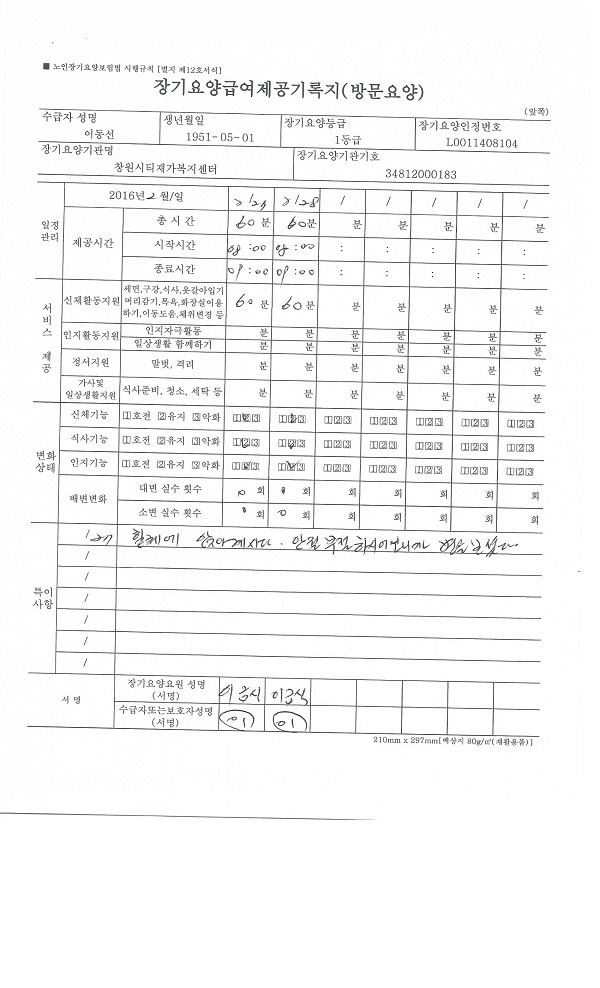 ■ 노인장기요양보험법 시행규칙 [별지 제12호서식]
장기요양급여제공기록지(방문요양)
(앞쪽)
수급자 성명 생년월일 장기요양등급 장기요양인정번호
이동선 1951-05-01 1등급 L0011408104
장기요양기관명 장기요양기관기호
창원시티재가복지센터 34812000183
일정관리 2016년 2월/일 2/28 / / / / /
제공시간 총 시 간 60 분 60 분 분 분 분 분 분
시작시간 08:00 08:00 : : : : :
종료시간 09:00 09:00 : : : : :
서비스 제공
신체활동지원 세면,구강,식사,옷갈아입기 머리감기,목욕,화장실이용 하기,이동도움,체위변경 등 60 분 60 분 분 분 분 분 분
인지활동지원 인지자극활동 분 분 분 분 분 분 분
일상생활 함께하기 분 분 분 분 분 분 분
정서지원 말벗, 격려 분 분 분 분 분 분 분
가사및 일상생활지원 식사준비, 청소, 세탁 등 분 분 분 분 분 분 분
변화상태
신체기능 1호전 2유지 3악화 123 123 123 123 123 123 123
식사기능 1호전 2유지 3악화 123 123 123 123 123 123 123
인지기능 1호전 2유지 3악화 123 123 123 123 123 123 123
배변변화 대변 실수 횟수 0 회 0 회 회 회 회 회 회
소변 실수 횟수 0 회 0 회 회 회 회 회 회
특이사항
/
/
/
/
/
/
서 명 장기요양요원 성명 (서명) 이금식 이금식
수급자또는보호자성명 (서명) 이 이
210mm x 297mm[백상지 80g/㎡(재활용품)]